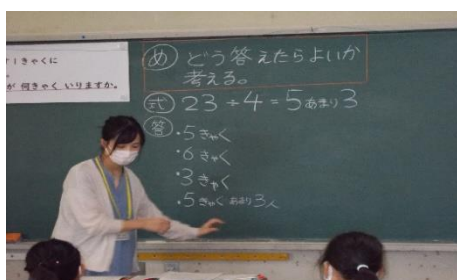 1きゃくに
。
が 何きゃく いりますか。
め どう答えたらよいか
考える。
式 23÷4=5あまり3
答
・5きゃく
・6きゃく
・3きゃく
・5きゃくあまり3人